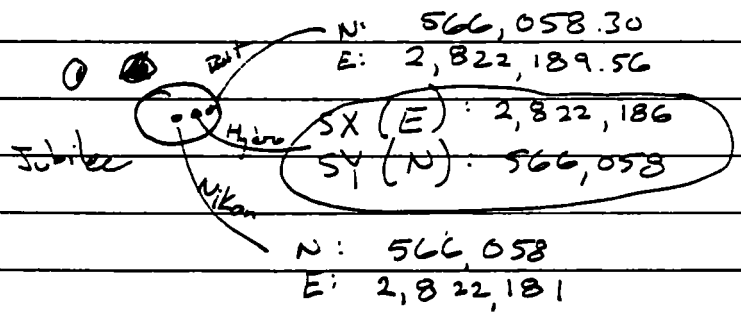 N: 566,058.30
E: 2,822,189.56
SX (E): 2,822,186
Hydro
SY (N): 566,058
Jubilee
Nikon
N: 566,058
E: 2,822,181